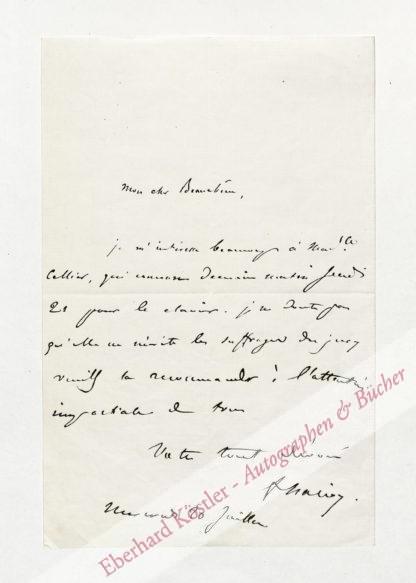 Mon cher Beauchêne,
je m'intéresse beaucoup à Mad.lle
Cellier, qui concourt demain matin Jeudi
21 pour le clavier. je ne doute pas
qu'elle ne mérite les suffrages du jury
veuillez la recommander à l'attention
impartiale de tous
Votre tout dévoué
F Halévy.
Mercredi 20 Juillet
Eberhard Köstler - Autographen & Bücher